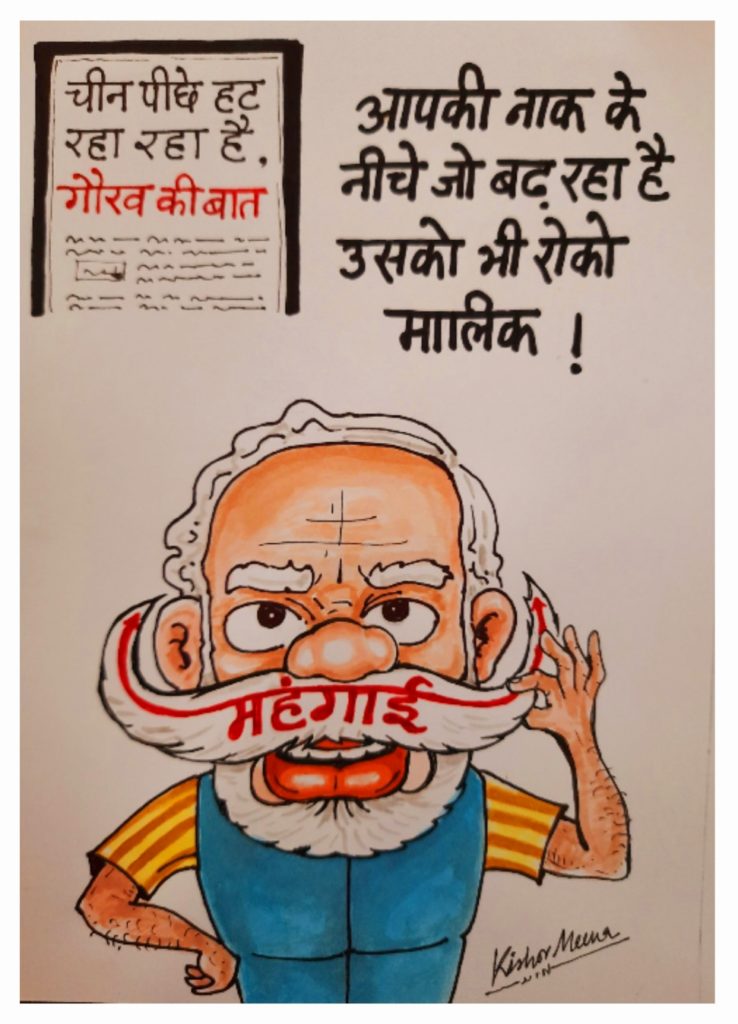 चीन पीछे हट
रहा रहा है,
गौरव की बात
आपकी नाक के
नीचे जो बढ़ रहा है
उसको भी रोको
मालिक !
महंगाई
Kishor Meena